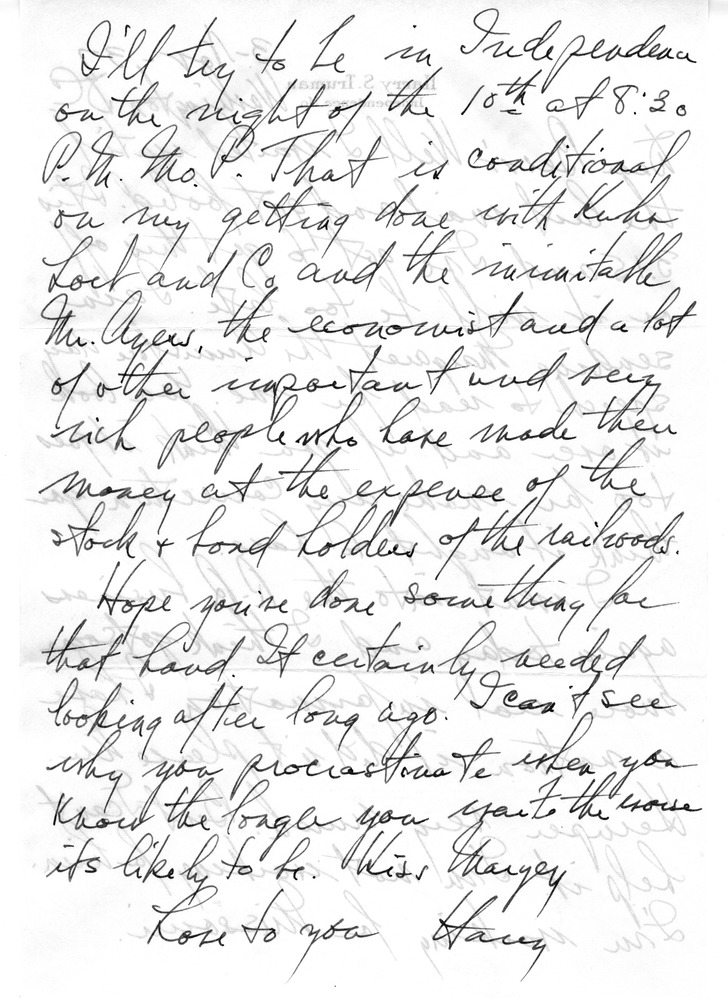 I'll try to be in Independence
on the night of the 10th at 8:30
P.M. Mo. P. That is conditional
on my getting done with Kuhn
Loeb and Co and the inimitable
Mr. Ayers, the economist and a lot
of other important and very
rich people who have made their
money at the expense of the
stock & bond holders of the railroads.
Hope you've done something for
that hand. It certainly needed
looking after long ago. I can't see
why you procrastinate when you
know the longer you wait the worse
its likely to be. Kiss Margey
Love to you Harry
Harry S. Truman